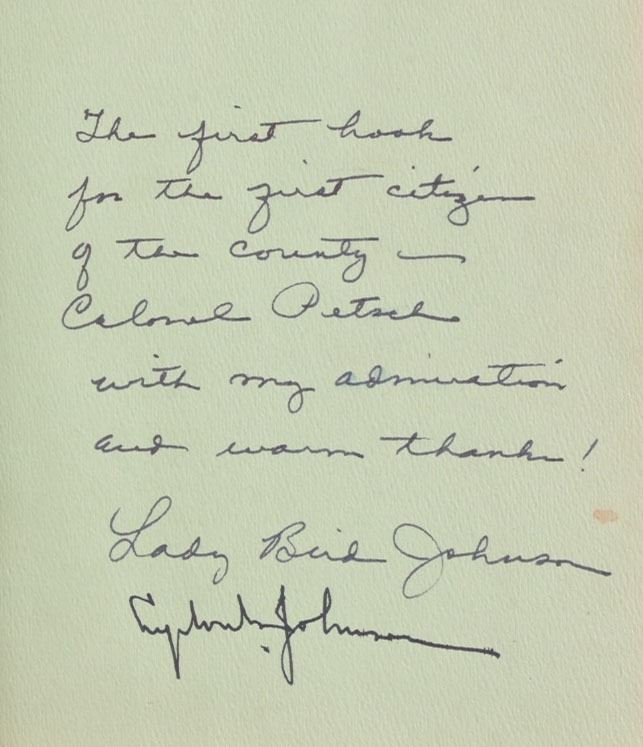 The first book
for the first citizen
of the county —
Colonel Petsch
with my admiration
and warm thanks!
Lady Bird Johnson
Lyndon B. Johnson